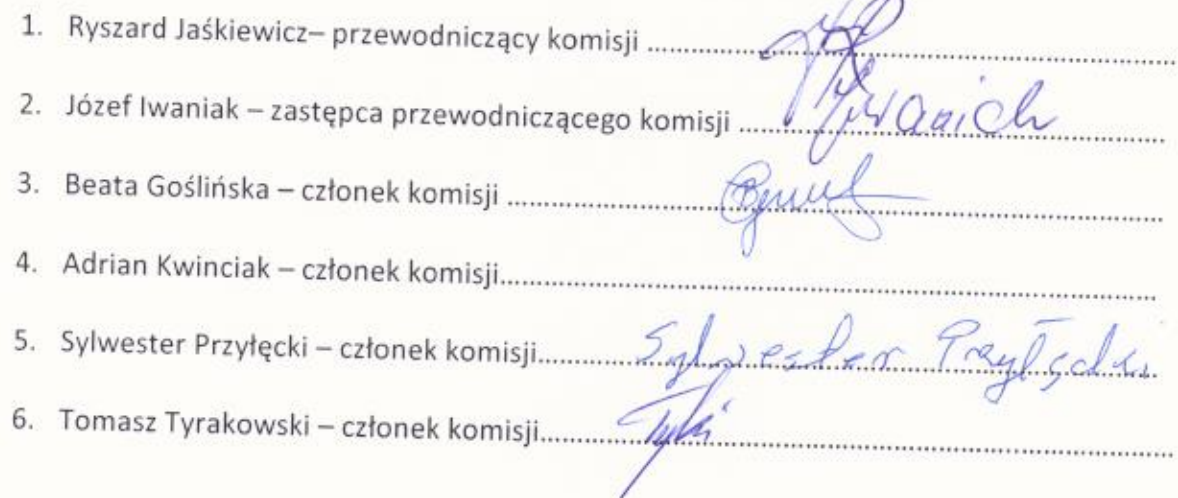 1. Ryszard Jaśkiewicz– przewodniczący komisji ........................................
2. Józef Iwaniak – zastępca przewodniczącego komisji ........................................
3. Beata Goślińska – członek komisji ........................................
4. Adrian Kwinciak – członek komisji........................................
5. Sylwester Przyłęcki – członek komisji........................................ Sylwester Przyłęcki
6. Tomasz Tyrakowski – członek komisji........................................